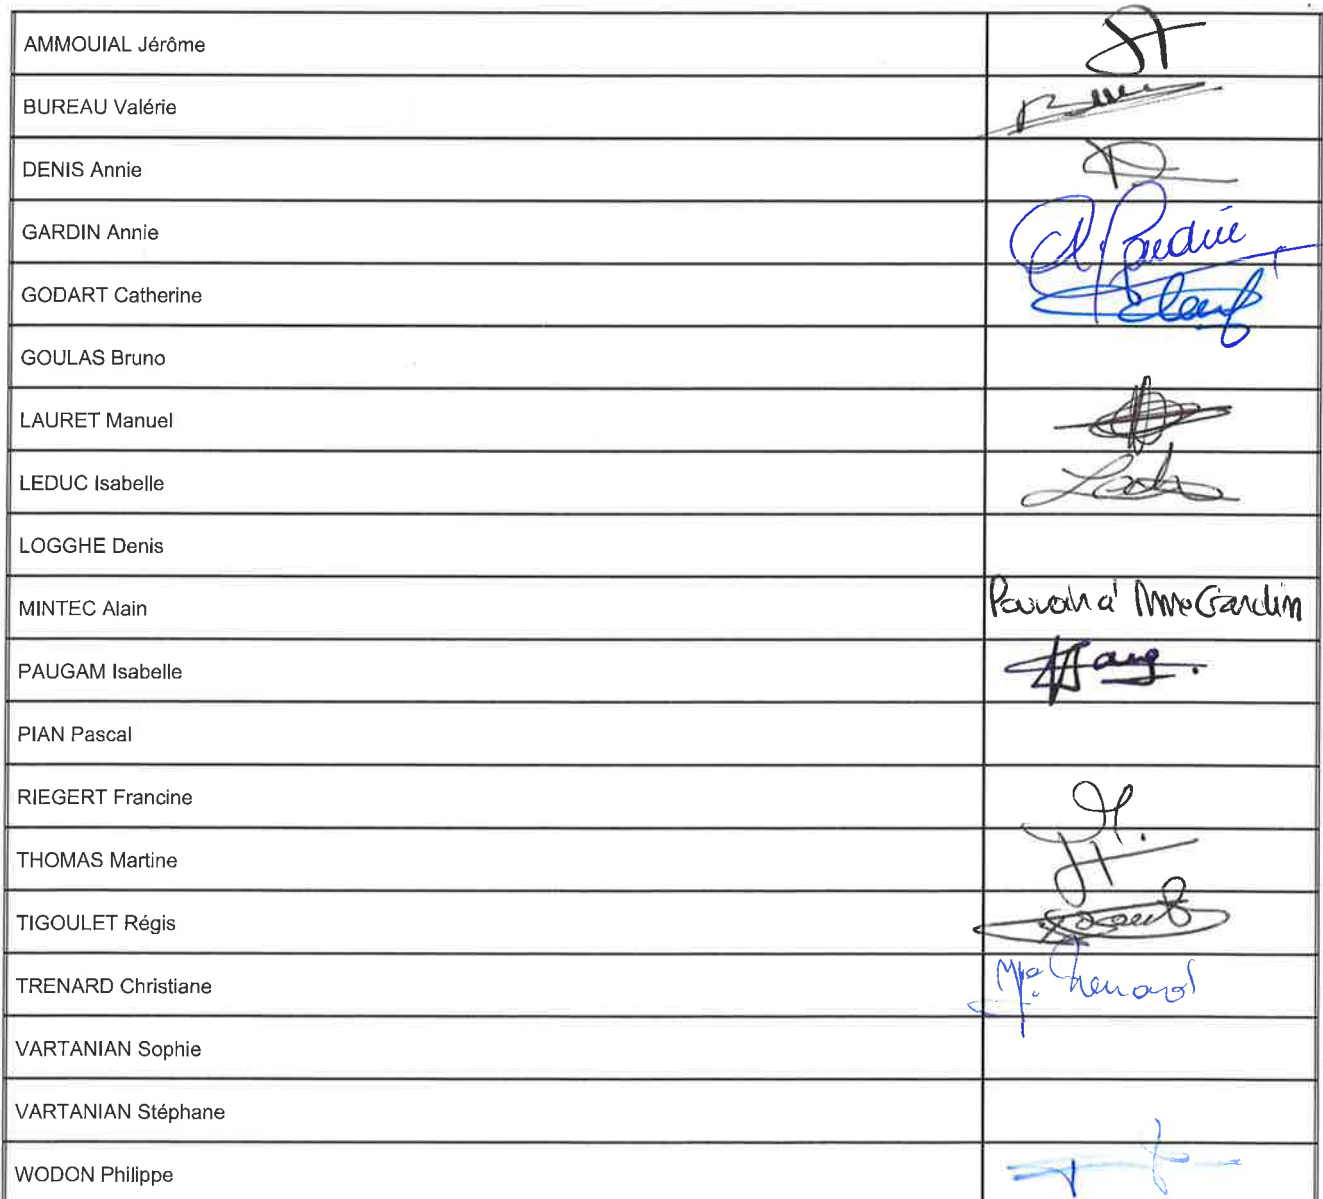 AMMOUIAL Jérôme
BUREAU Valérie
DENIS Annie
GARDIN Annie
A. Gardin
GODART Catherine
GOULAS Bruno
LAURET Manuel
LEDUC Isabelle
LOGGHE Denis
MINTEC Alain
Pouvoir à Mme Gardin
PAUGAM Isabelle
PIAN Pascal
RIEGERT Francine
THOMAS Martine
TIGOULET Régis
TRENARD Christiane
VARTANIAN Sophie
VARTANIAN Stéphane
WODON Philippe